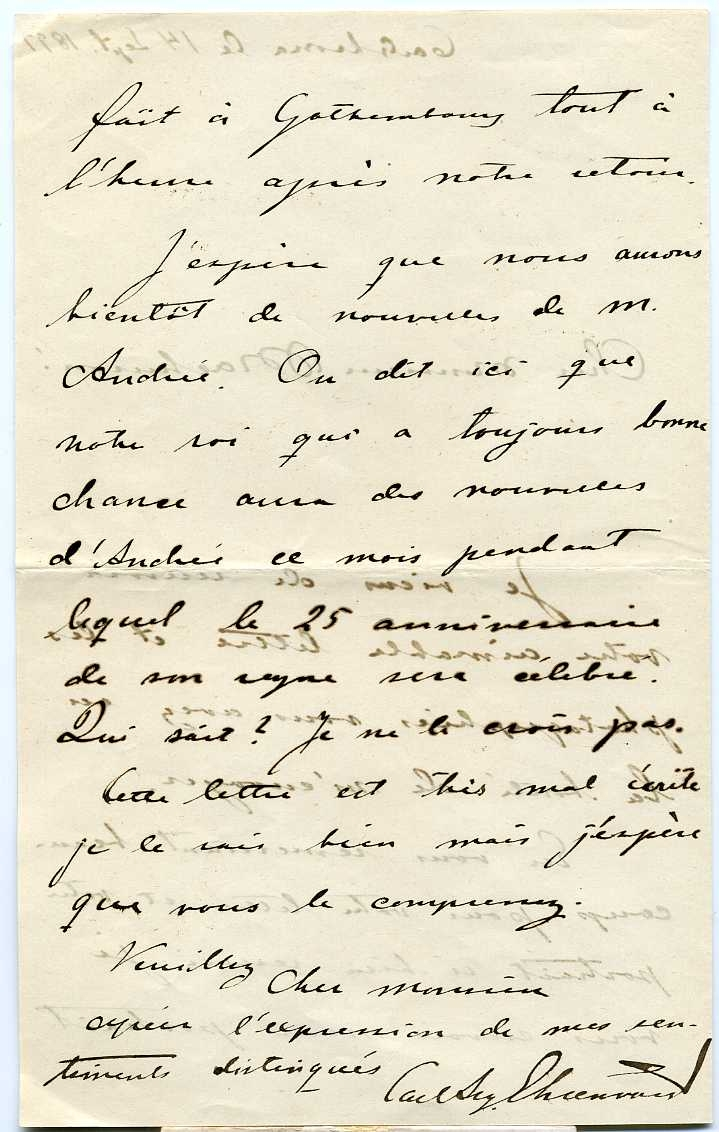 fait à Gothembourg tout à
l'heure après notre retour.
J'espère que nous aurons
bientôt de nouvelles de M.
Andrée. On dit ici que
notre roi qui a toujours bonne
chance aura des nouvelles
d'Andrée ce mois pendant
lequel le 25 anniversaire
de son regne sera célebre.
Qui sait? Je ne le crois pas.
Cette lettre est très mal écrite
je le sais bien mais j'éspère
que vous le comprenez.
Veuillez Cher Monsieur
agréer l'expression de mes sen-
timents distingués
Carl Aug. Ehrensvärd